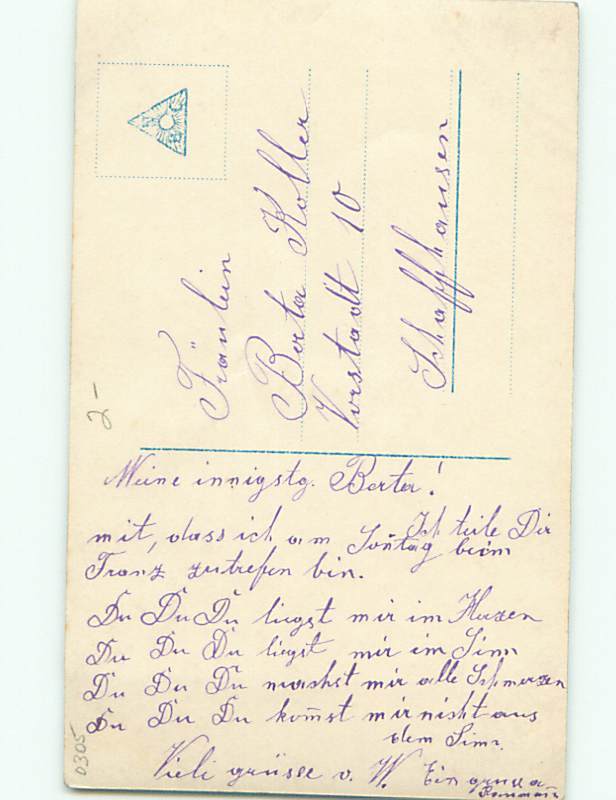 Fräulein
Berta Koller
Vorstadt 10
Schaffhausen
2-
Meine innigstg. Berta!
Ich teile Dir
mit, dass ich am Sontag beim
Franz zutrefen bin.
Du Du Du liegst mir im Herzen
Du Du Du liegst mir im Sinn
Du Du Du machst mir alle Schmerzen
Du Du Du kom̄st mir nicht aus
dem Sinn.
Vieli grüsse v. W.
0305